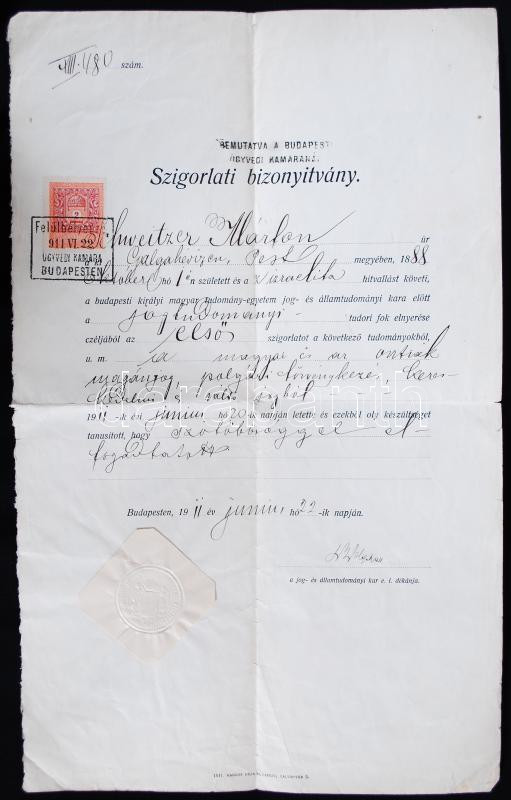 VIII. 480 szám.
BEMUTATVA A BUDAPESTI
ÜGYVÉDI KAMARÁNÁL
Szigorlati bizonyitvány.
2
Felülbélyegezve
911 VI. 22
ÜGYVÉDI KAMARA
BUDAPESTEN
Schweitzer Márton úr
a ki Galgahevizen, Pest megyében, 1888
október hó 1 én született és a z izraelita hitvallást követi,
a budapesti királyi magyar tudomány-egyetem jog- és államtudományi kara előtt
a jogtudományi tudori fok elnyerése
czéljából az első szigorlatot a következő tudományokból,
u. m. a magyar és az osztrák
magánjog, polgári törvénykezés, keres-
kedelmi és váltó jogból
1911-ik évi június hó 20-ik napján letette és ezekből oly készültséget
tanusított, hogy szótöbbséggel el-
fogadtatott
Budapesten, 1911 év június hó 22-ik napján.
a jog- és államtudományi kar e. i. dékánja.
darabanth